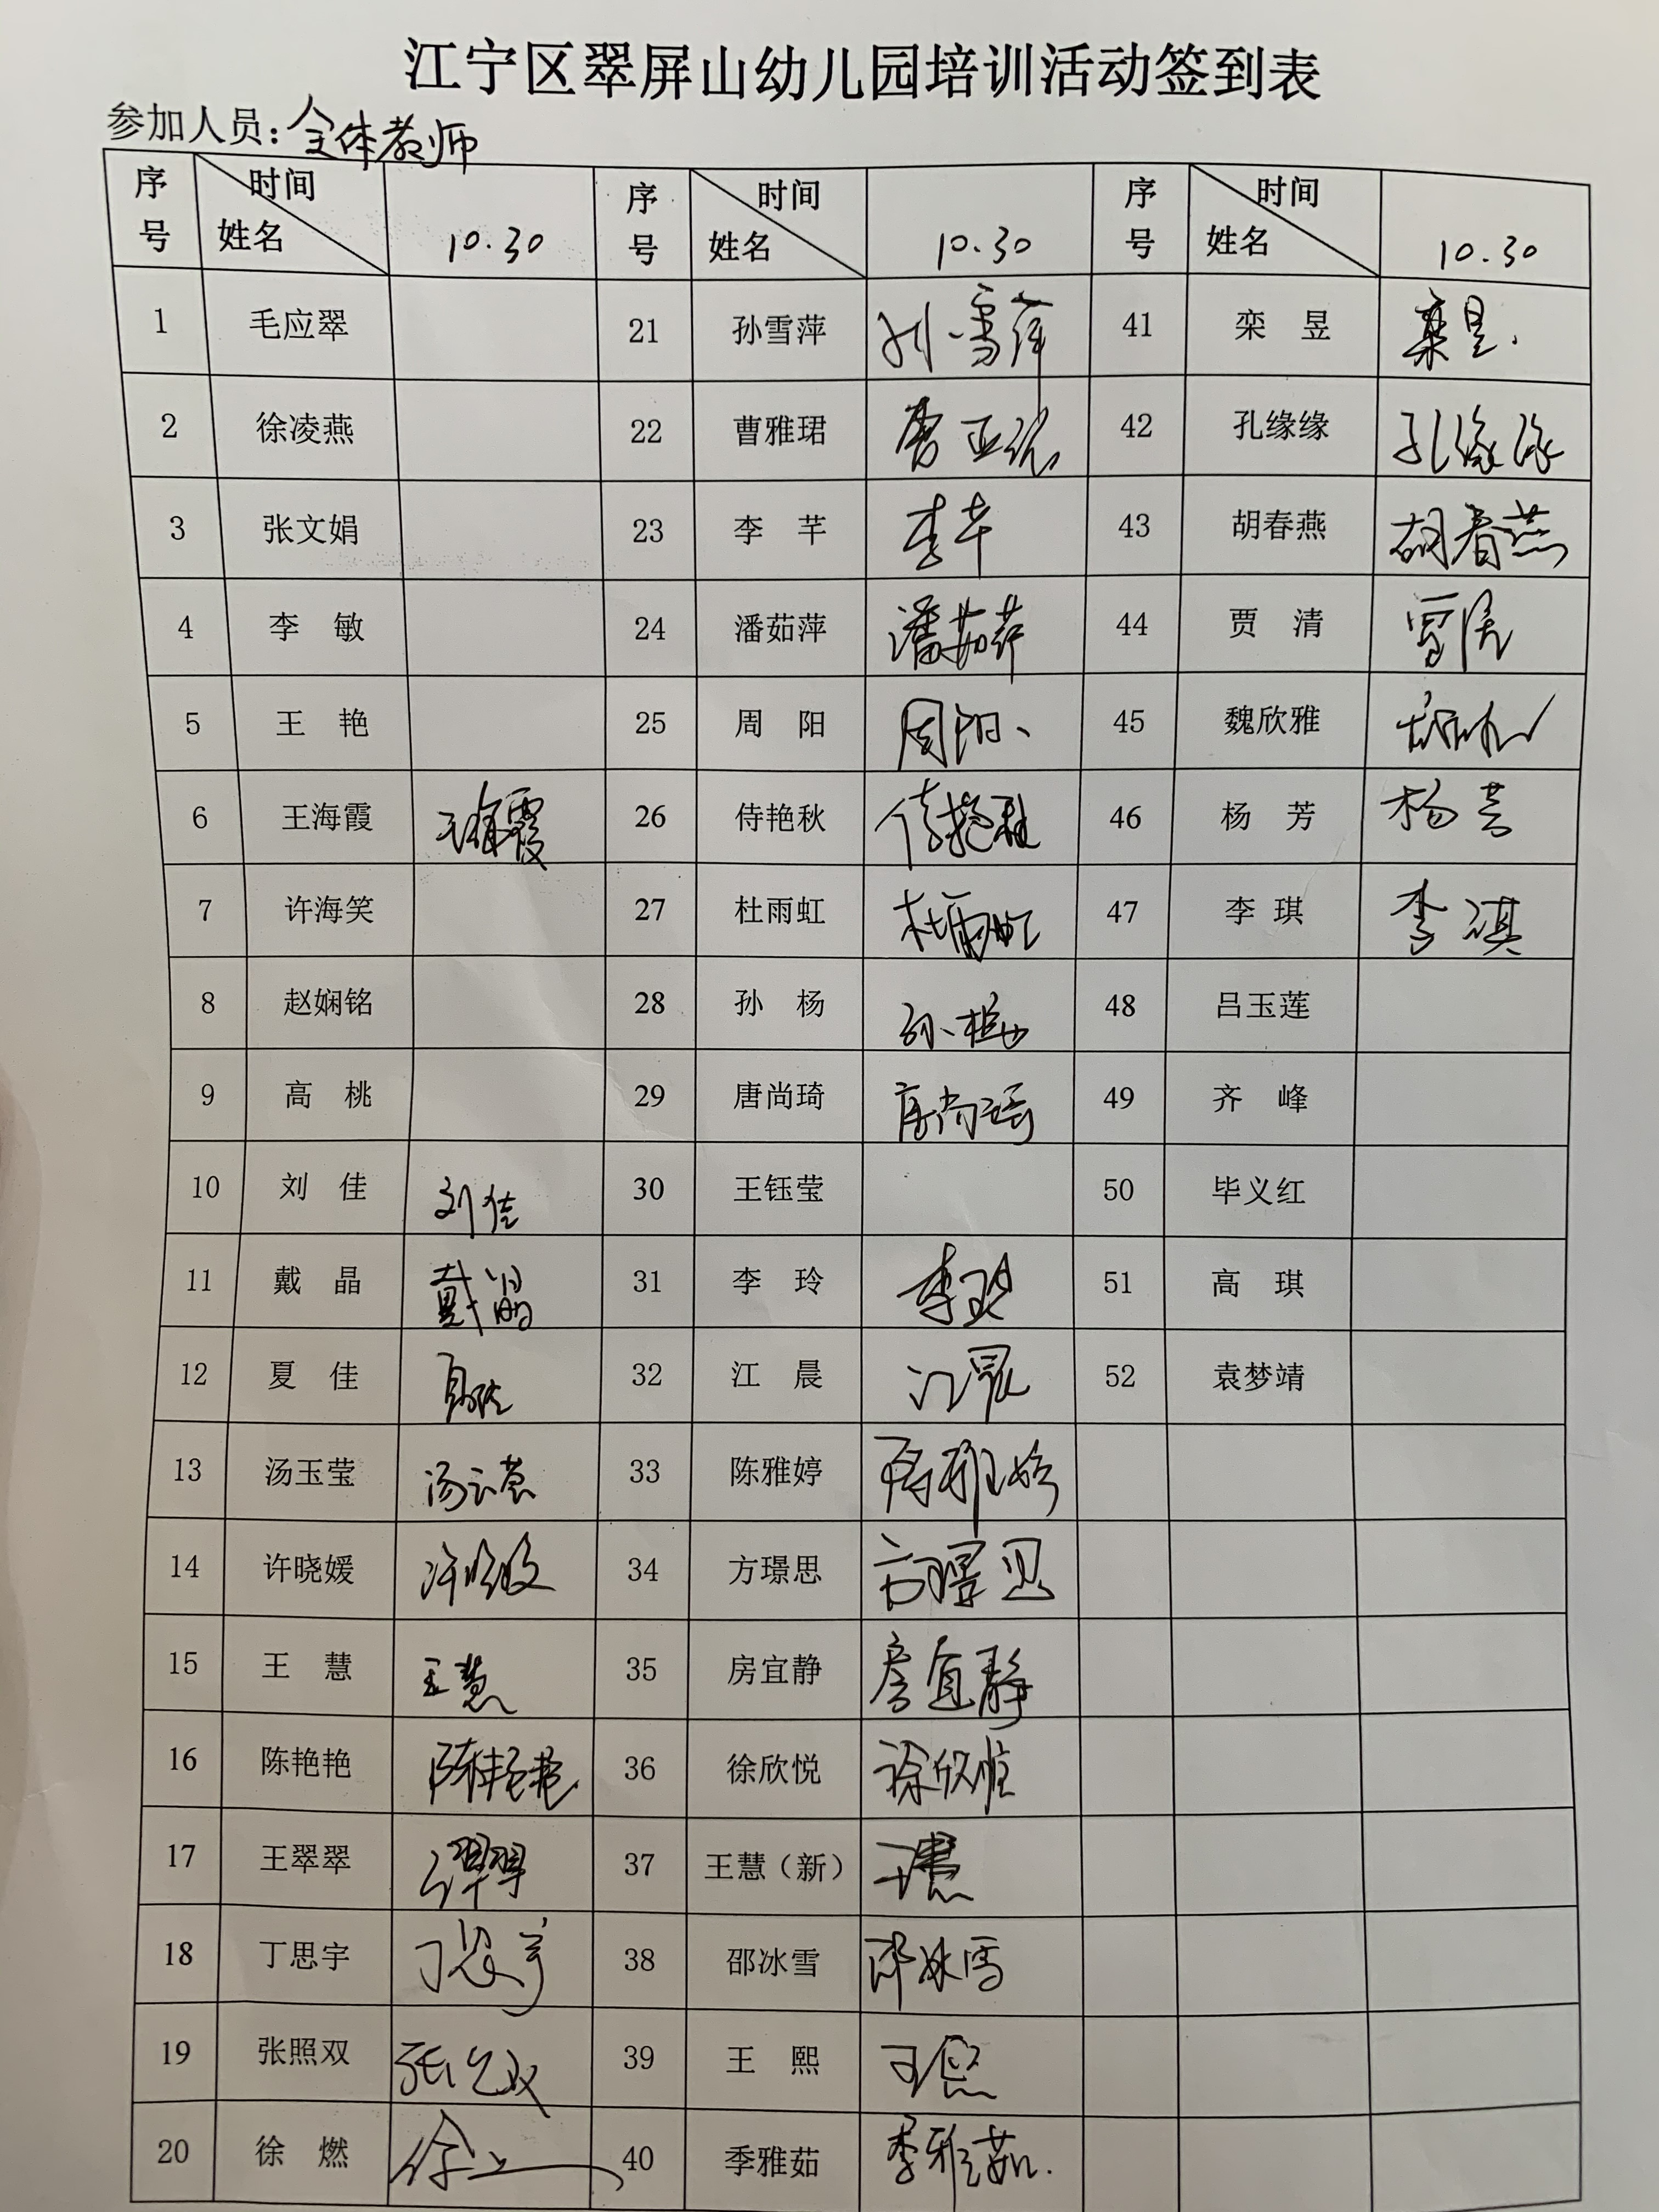 江宁区翠屏山幼儿园培训活动签到表
参加人员：全体教师
序号 时间 姓名 10.30 序号 时间 姓名 10.30 序号 时间 姓名 10.30
1 毛应翠 21 孙雪萍 孙雪萍 41 栾昱 栾昱.
2 徐凌燕 22 曹雅珺 曹亚珺 42 孔缘缘 孔缘缘
3 张文娟 23 李芊 李芊 43 胡春燕 胡春燕
4 李敏 24 潘茹萍 潘茹萍 44 贾清 贾清
5 王艳 25 周阳 周阳、 45 魏欣雅
6 王海霞 王海霞 26 侍艳秋 侍艳秋 46 杨芳 杨芳
7 许海笑 27 杜雨虹 杜雨虹 47 李琪 李琪
8 赵娴铭 28 孙杨 孙杨 48 吕玉莲
9 高桃 29 唐尚琦 唐尚琦 49 齐峰
10 刘佳 刘佳 30 王钰莹 50 毕义红
11 戴晶 戴晶 31 李玲 李玲 51 高琪
12 夏佳 夏佳 32 江晨 江晨 52 袁梦靖
13 汤玉莹 汤玉莹 33 陈雅婷 陈雅婷
14 许晓媛 许晓媛 34 方璟思 方璟思
15 王慧 王慧 35 房宜静 房宜静
16 陈艳艳 陈艳艳 36 徐欣悦 徐欣悦
17 王翠翠 王翠翠 37 王慧（新） 王慧
18 丁思宇 丁思宇 38 邵冰雪 邵冰雪
19 张照双 张照双 39 王熙 王熙
20 徐燃 40 季雅茹 季雅茹.